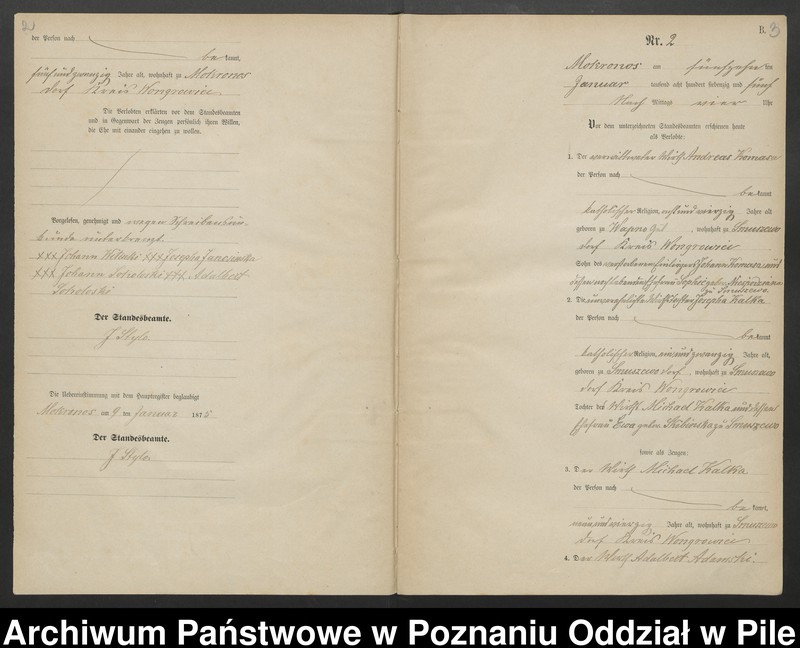 2
der Person nach
be kannt,
fünfundzwanzig Jahre alt, wohnhaft zu Mokronos
dorf Kreis Wongrowiec.
Die Verlobten erklärten vor dem Standesbeamten
und in Gegenwart der Zeugen persönlich ihren Willen,
die Ehe mit einander eingehen zu wollen.
Vorgelesen, genehmigt und wegen Schreibensun-
kunde unterkreuzt.
+++ Johann +++ Josepha
+++ Johann +++ Adalbert
Der Standesbeamte.
J Stylo
Die Uebereinstimmung mit dem Hauptregister beglaubigt
Mokronos am 9 ten Januar 1875
Der Standesbeamte.
J Stylo
B. 3
Nr. 2
Mokronos am fünfzehn ten
Januar tausend acht hundert siebenzig und fünf
Nach Mittags vier Uhr
Vor dem unterzeichneten Standesbeamten erschienen heute
als Verlobte:
1. Der verwittwete Wirth Andreas Komasa
der Person nach
be kannt
katholischer Religion, Jahre alt
geboren zu Wapno Gut, wohnhaft zu Smuszewo
dorf Kreis Wongrowiec
Sohn des verstorbenen Einliegers Johann Komasa und
dessen Ehefrau Sophie geborne
zu Smuszewo.
2. Die unverehelichte Wirthstochter Josepha Kalka
der Person nach
be kannt
katholischer Religion, einundzwanzig Jahre alt,
geboren zu Smuszewo dorf, wohnhaft zu Smuszewo
dorf Kreis Wongrowiec
Tochter des Wirth Michael Kalka und dessen
Ehefrau Ewa geborne Skibinska zu Smuszewo
sowie als Zeugen:
3. Der Wirth Michael Kalka
der Person nach
be kannt,
neunundvierzig Jahre alt, wohnhaft zu Smuszewo
dorf Kreis Wongrowiec
4. Der Wirth Adalbert Adamski.
Archiwum Państwowe w Poznaniu Oddział w Pile